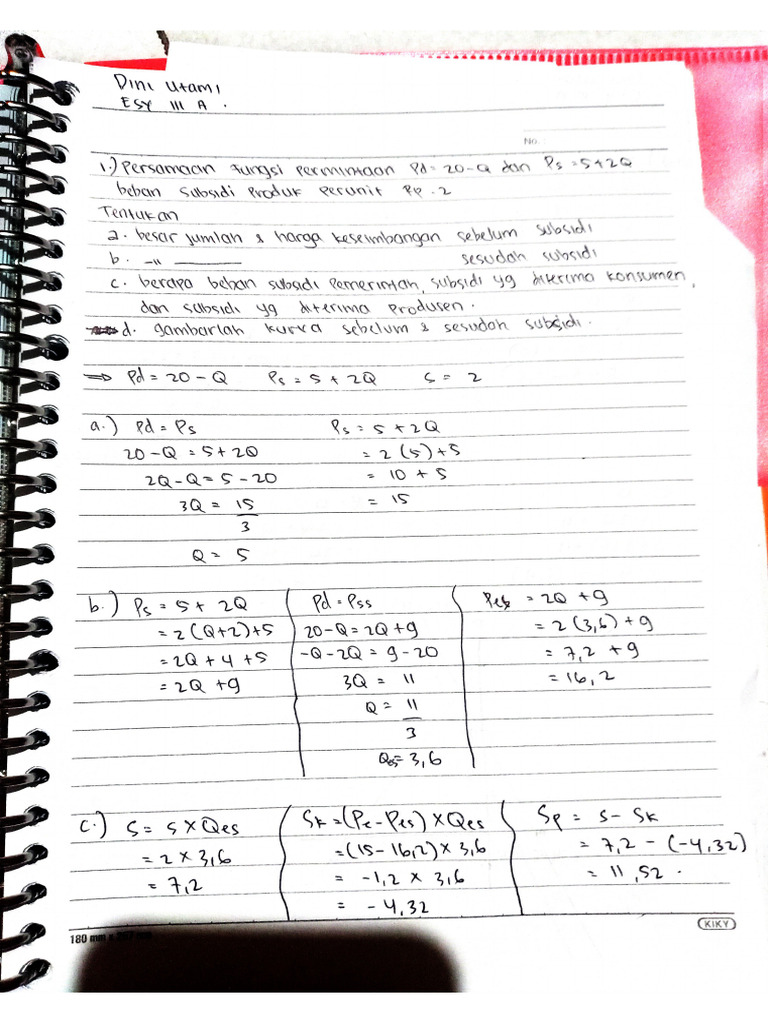 Dini Utami
ESY III A.
No.
1.) Persamaan fungsi permintaan Pd = 20-Q dan Ps = 5+2Q
beban subsidi produk perunit Rp. 2
Tentukan
a. besar jumlah & harga keseimbangan sebelum subsidi
b. –"– sesudah subsidi
c. berapa beban subsidi pemerintah, subsidi yg diterima konsumen,
dan subsidi yg diterima produsen.
d. gambarlah kurva sebelum & sesudah subsidi.
=> Pd = 20 - Q Ps = 5 + 2Q S = 2
a.) Pd = Ps
20 - Q = 5 + 2Q
2Q - Q = 5 - 20
3Q = 15
3
Q = 5
Ps = 5 + 2Q
= 2 (5) + 5
= 10 + 5
= 15
b.) Ps = 5 + 2Q
= 2 (Q+2) + 5
= 2Q + 4 + 5
= 2Q + 9
Pd = Pss
20 - Q = 2Q + 9
-Q - 2Q = 9 - 20
3Q = 11
Q = 11
3
Qes = 3,6
Pes = 2Q + 9
= 2 (3,6) + 9
= 7,2 + 9
= 16,2
c.) S = s x Qes
= 2 x 3,6
= 7,2
Sk = (Pe - Pes) x Qes
= (15 - 16,2) x 3,6
= -1,2 x 3,6
= - 4,32
Sp = s - Sk
= 7,2 - (-4,32)
= 11,52.
180 mm x
KIKY